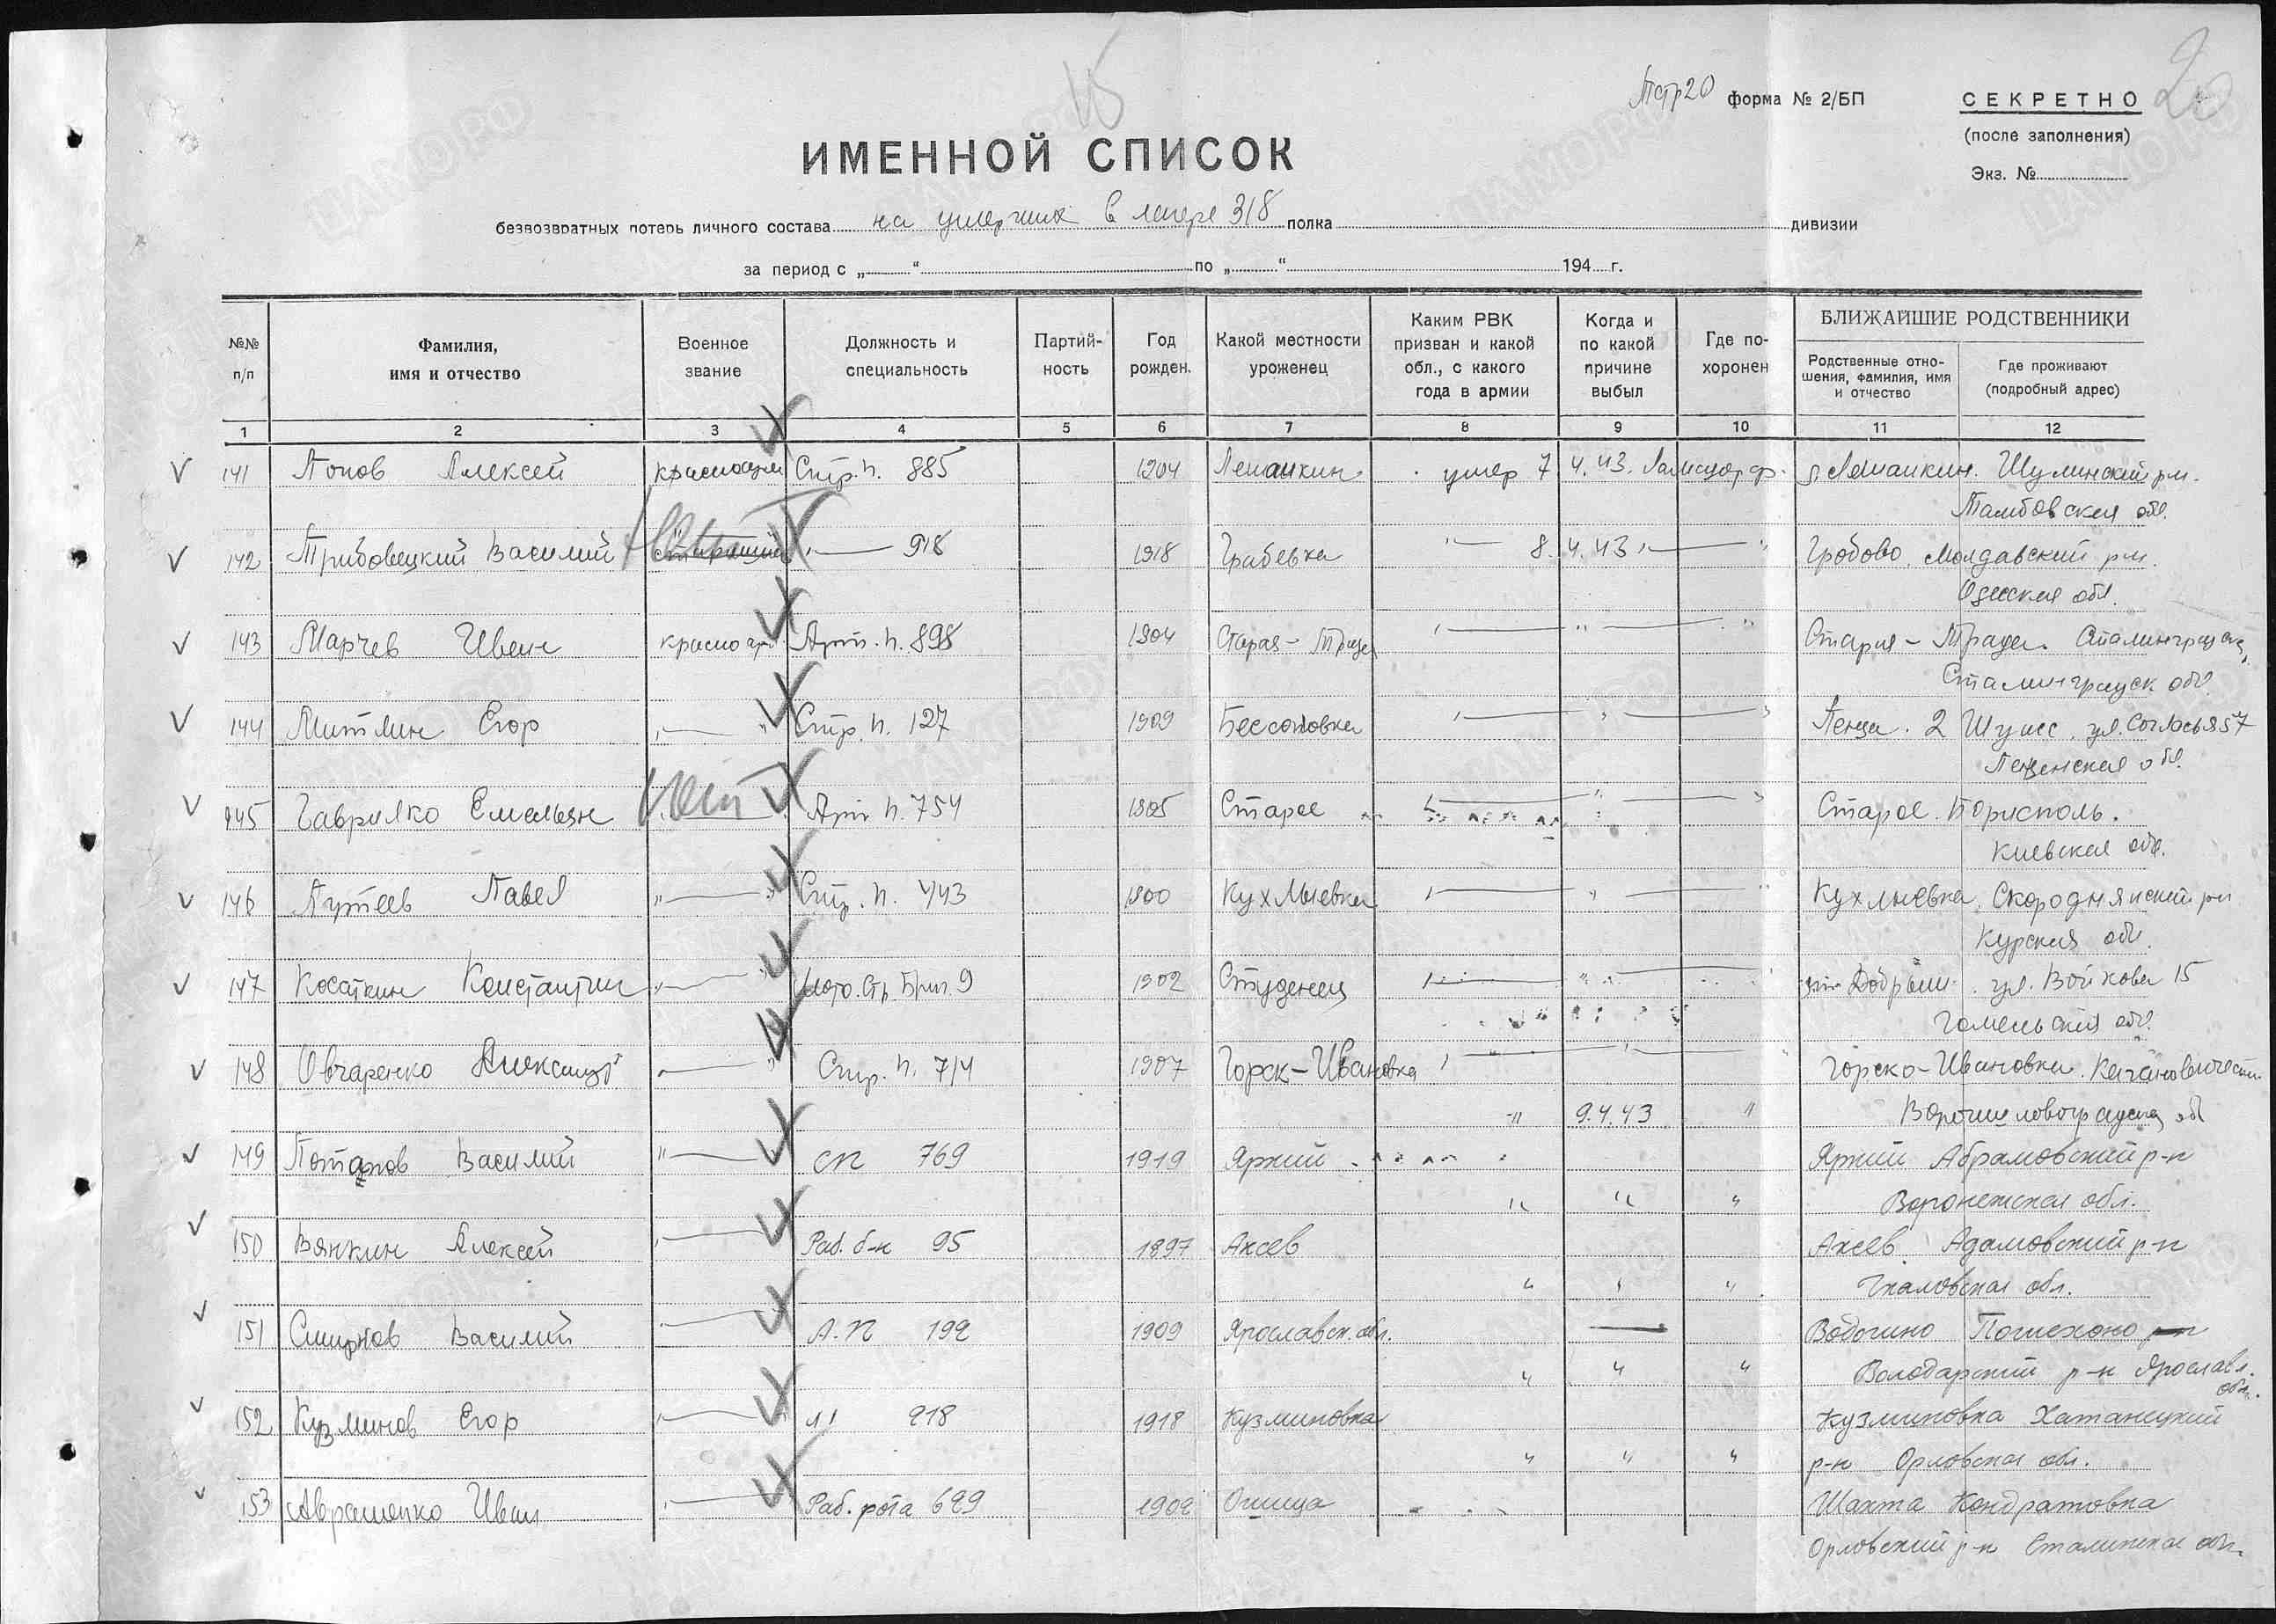 15
20
стр 20 форма № 2/БП
СЕКРЕТНО
(после заполнения)
Экз. №
ИМЕННОЙ СПИСОК
безвозвратных потерь личного состава на умерших в лагере 318 полка дивизии
за период с „ “ по „ “ 194 г.
№№ п/п
Фамилия, имя и отчество
Военное звание
Должность и специальность
Партий-ность
Год рожден.
Какой местности уроженец
Каким РВК призван и какой обл., с какого года в армии
Когда и по какой причине выбыл
Где по-хоронен
БЛИЖАЙШИЕ РОДСТВЕННИКИ
Родственные отно-шения, фамилия, имя и отчество
Где проживают (подробный адрес)
1 2 3 4 5 6 7 8 9 10 11 12
141 Попов Алексей Стр. п. 885 1904 умер 7 4.43.
Тамбовская обл.
142 Трибовецкий Василий " 918 1918 Грабевка " 8. 4.43 " " Гробово. Молдавский рн.
Одесская обл.
143 Марчев Иван Арт. п. 898 1904 " " "
Сталинградск обл.
144 Митлин Егор " " Стр. п. 127 1909 Бессоновка " " " Пенза. 2
Пензенская обл.
145 Гаврилко Емельян Арт п. 754 1905 Старое " " " Старое. Борисполь.
Киевская обл.
146 Путеев Павел " " Стр. п. 443 1900 Кухлыевка " " " Кухлыевка. Скороднянский рн
Курская обл.
147 Косаткин Константин " " Мото. Стр. Бриг. 9 1902 Студенец " " ул. Войкова 15
Гомельская обл.
148 Овчаренко Александр " " Стр. п. 714 1907 Горск-Ивановка " " " Горско-Ивановка.
" 9.4.43 " Ворошиловоградск обл
149 Потапов Василий " сп 769 1919 Яркий Яркий Абрамовский р-н
" " " Воронежская обл.
150 Вянкин Алексей " Раб. б-н 95 1897 Аксев Аксев Адамовский р-н
" " " Чкаловская обл.
151 Смирнов Василий А.П 192 1909 Ярославск. обл. Пошехоно
" " " Володарский р-н Ярославл. обл.
152 Кузминов Егор " " 918 1918 Кузминовка Кузминовка
" " " р-н Орловская обл.
153 Авраменко Иван " Раб. рота 699 1902 Шахта Кондратовка
Орловский р-н Сталинская обл.